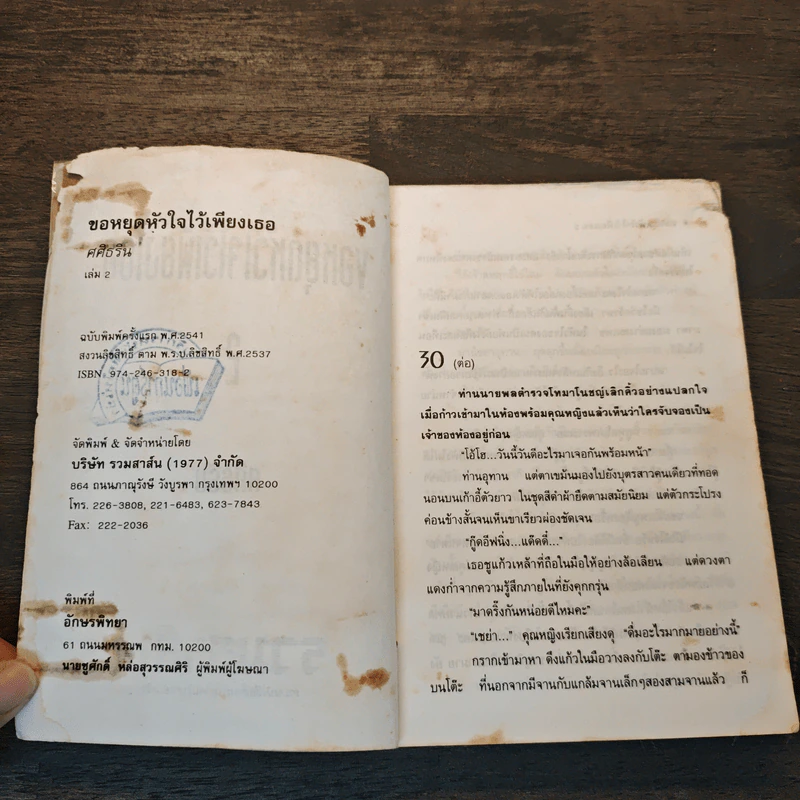 ขอหยุดหัวใจไว้เพียงเธอ
ศศิธริน
เล่ม 2
ฉบับพิมพ์ครั้งแรก พ.ศ.2541
สงวนลิขสิทธิ์ ตาม พ.ร.บ.ลิขสิทธิ์ พ.ศ.2537
ISBN 974-246-318-2
จัดพิมพ์ & จัดจำหน่ายโดย
บริษัท รวมสาส์น (1977) จำกัด
864 ถนนภาณุรังษี วังบูรพา กรุงเทพฯ 10200
โทร. 226-3808, 221-6483, 623-7843
Fax: 222-2036
พิมพ์ที่
อักษรพิทยา
61 ถนนมหรรณพ กทม. 10200
นายชูศักดิ์ หล่อสุวรรณศิริ ผู้พิมพ์ผู้โฆษณา
30 (ต่อ)
ท่านนายพลตำรวจโทมาโนชญ์เลิกคิ้วอย่างแปลกใจ
เมื่อก้าวเข้ามาในห้องพร้อมคุณหญิงแล้วเห็นว่าใครจับจองเป็น
เจ้าของห้องอยู่ก่อน
"โอ้โฮ...วันนี้วันดีอะไรมาเจอกันพร้อมหน้า"
ท่านอุทาน แต่ตาเขม้นมองไปยังบุตรสาวคนเดียวที่ทอด
นอนบนเก้าอี้ตัวยาว ในชุดสีดำผ้ายืดตามสมัยนิยม แต่ตัวกระโปรง
ค่อนข้างสั้นจนเห็นขาเรียวผ่องชัดเจน
"กู๊ดอีฟนิ่ง...แด๊ดดี้..."
เธอชูแก้วเหล้าที่ถือในมือให้อย่างล้อเลียน แต่ดวงตา
แดงก่ำจากความรู้สึกภายในที่ยังคุกกรุ่น
"มาดริ๊งกันหน่อยดีไหมคะ"
"เชย่า..." คุณหญิงเรียกเสียงดุ "ดื่มอะไรมากมายอย่างนี้"
กรากเข้ามาหา ดึงแก้วในมือวางลงกับโต๊ะ ตามองข้าวของ
บนโต๊ะ ที่นอกจากมีจานกับแกล้มจานเล็กๆสองสามจานแล้ว ก็